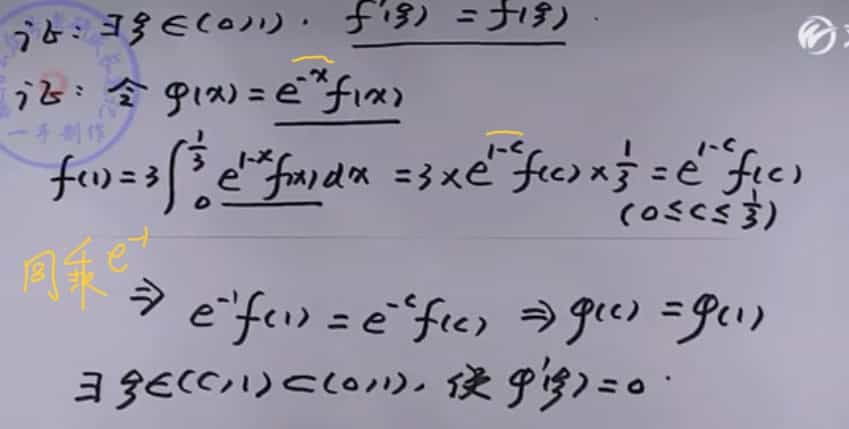 证:∃ξ∈(0,1). f'(ξ) = f(ξ).
证:令 φ(x) = e^{-x}f(x)
f(1) = 3∫_0^{1/3} e^{1-x}f(x)dx = 3×e^{1-c}f(c)×1/3 = e^{1-c}f(c)
(0≤c≤1/3)
同乘e^{-1}
⇒ e^{-1}f(1) = e^{-c}f(c) ⇒ φ(c) = φ(1)
∃ξ∈(c,1)⊂(0,1). 使 φ'(ξ)=0.
一手制作